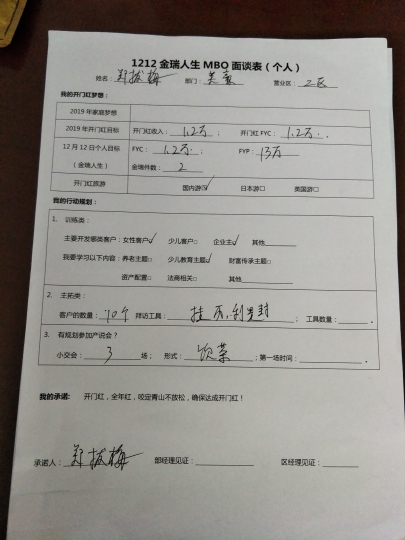 1212 金瑞人生 MBO 面谈表（个人）
姓名：郑拔梅 部门： 营业区：二区
我的开门红梦想：
2019 年家庭梦想
2019 年开门红目标 开门红收入：1.2万； 开门红 FYC：1.2万.
12 月 12 日个人目标 FYC：1.2万； FYP：13万
（金瑞人生） 金瑞件数：2
开门红旅游 国内游☑ 日本游□ 美国游□
我的行动规划：
1. 训练类：
主要开发哪类客户：女性客户☑ 少儿客户□ 企业主☑ 其他
我要学习以下内容：养老主题□ 少儿教育主题☑ 财富传承主题□
资产配置□ 法商相关□ 其他
2. 主拓类：
客户的数量：10个 拜访工具：挂历,利是封；工具数量：。
3. 有规划参加产说会？
小交会：3场； 形式：饮茶；第一场时间：。
我的承诺： 开门红，全年红，咬定青山不放松，确保达成开门红！
承诺人：郑拔梅 部经理见证： 区经理见证：